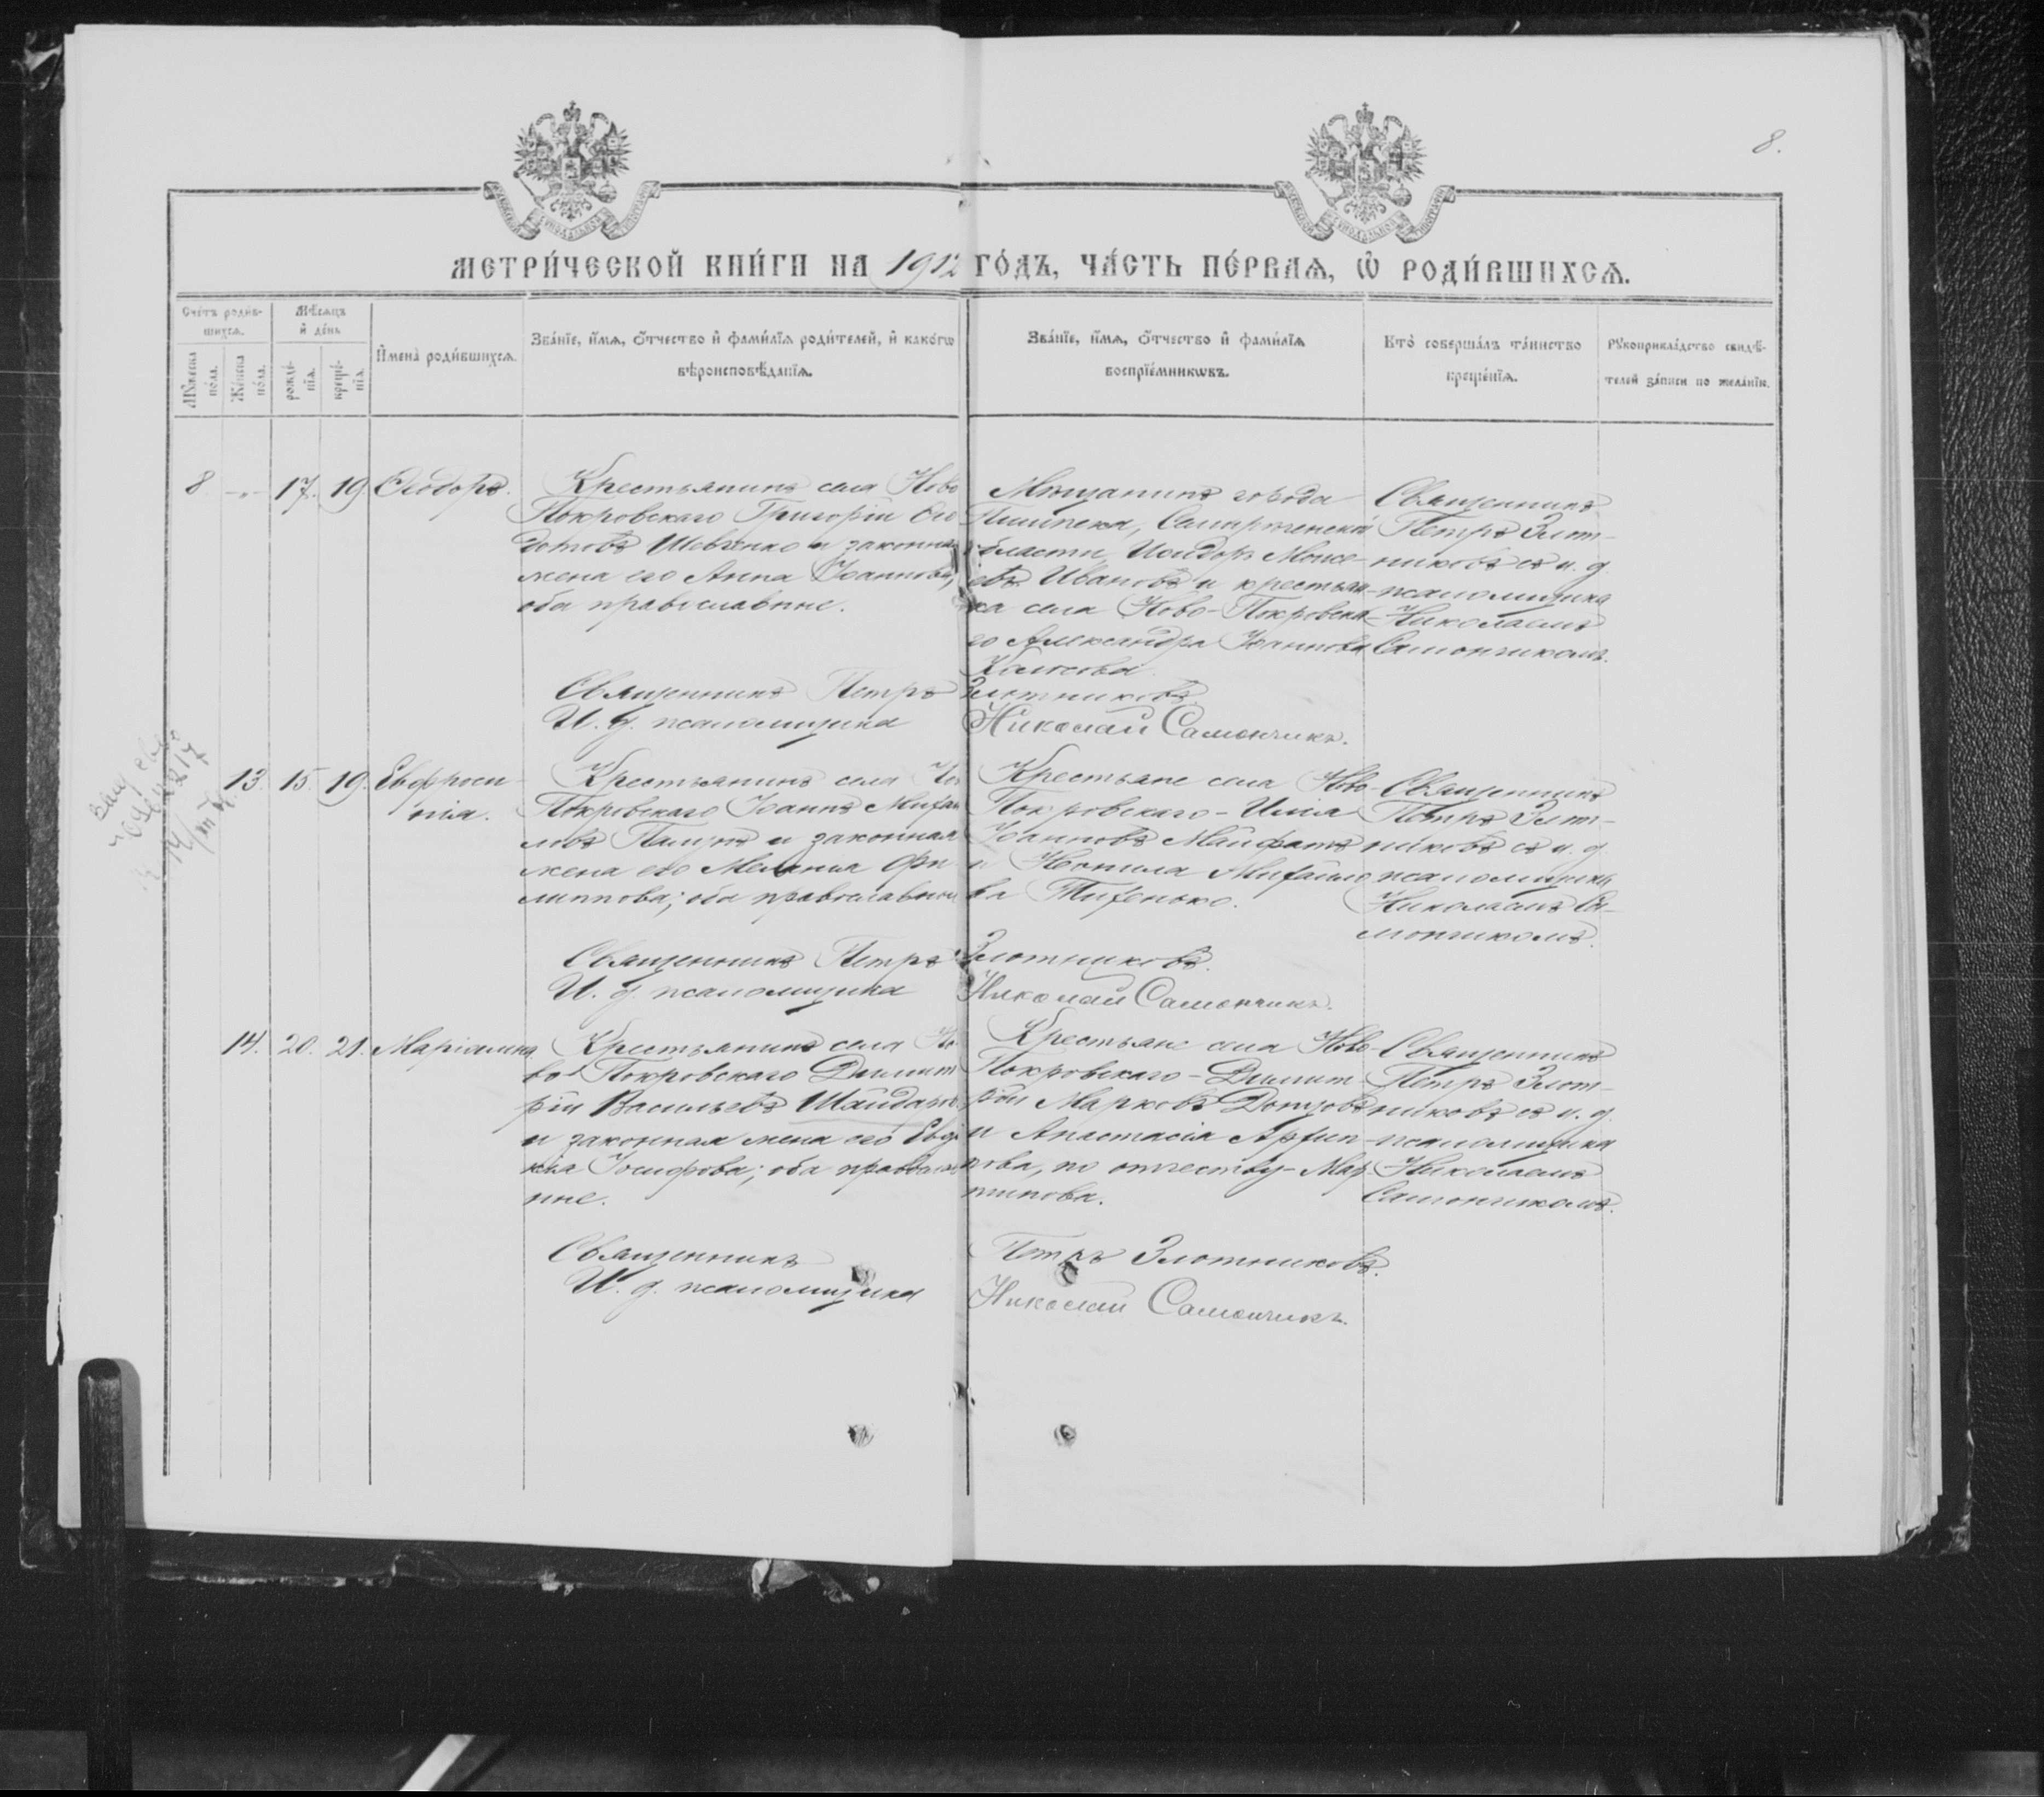 8.
МЕТРИ́ЧЕСКОЙ КНИ́ГИ НА 1912 ГО́ДЪ, ЧА́СТЬ ПЕ́РВАЯ, Ѡ҆ РОДИ́ВШИХСѦ.
Сче́тъ роди́в-
шихсѧ.
Мѣ́сѧцъ
и҆ де́нь
Мꙋ́жеска
по́ла.
Же́нска
по́ла.
рожде́-
нїѧ.
креще́-
нїѧ.
И҆мена̀ роди́вшихсѧ.
Зва́нїе, и҆́мѧ, ѻ҆́тчество и҆ фами́лїѧ роди́телей, и҆ како́гѡ
вѣроисповѣ́данїѧ.
Зва́нїе, и҆́мѧ, ѻ҆́тчество и҆ фами́лїѧ
воспрїе́мникѡвъ.
Кто̀ соверша́лъ та́инство
креще́нїѧ.
Рꙋкоприкла́дство свидѣ́-
телей за́писи по жела́нїю.
8 -„- 17. 19. Ѳеодоръ.
Крестьянинъ села Ново
Покровскаго Григорій Ѳео
дотовъ Шевченко и законная
жена его Анна Іоаннова,
оба православные.
Мѣщанинъ города
Пишпека, Семирѣченской
области, Исидоръ Моисе-
евъ Ивановъ и крестьян-
ка села Ново-Покровска-
го Александра Іоаннова
Священникъ
Петръ Злот-
никовъ съ и. д.
псаломщика
Николаемъ
Самончикомъ.
Священникъ Петръ Злотниковъ.
И. д. псаломщика Николай Самончикъ.
13. 15. 19. Евфроси-
нія.
Крестьянинъ села Но
Покровскаго Іоаннъ Михаи
ловъ и законная
жена его Меланія Фи
липпова; оба православные
Крестьяне села Ново-
Покровскаго - Илія
Іоанновъ
и Неонила Михайло
ва Тищенько.
Священникъ
Петръ Злот-
никовъ съ и. д.
псаломщика
Николаемъ Са-
мончикомъ.
Священникъ Петръ Злотниковъ.
И. д. псаломщика Николай Самончикъ.
14. 20. 21. Маріамна
Крестьянинъ села Но-
во Покровскаго Димит
рій Васильевъ
и законная жена его Евдо
кія Іосифова; оба православ
ные.
Крестьяне села Ново-
Покровскаго - Димит-
рій Марковъ
и Анастасія
по отчеству - Мар-
тинова.
Священникъ
Петръ Злот-
никовъ съ и. д.
псаломщика
Николаемъ
Самончикомъ.
Священникъ Петръ Злотниковъ.
И. д. псаломщика Николай Самончикъ.